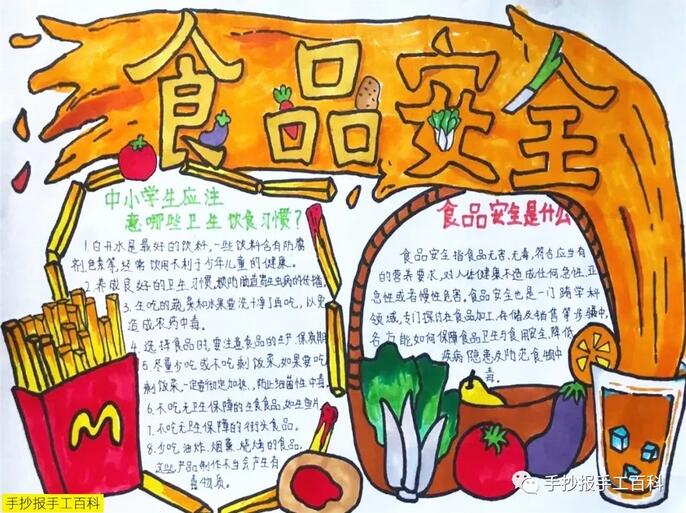 食品安全
中小学生应注
意哪些卫生饮食习惯？
1.白开水是最好的饮料,一些饮料含有防腐
剂,色素等,经常饮用不利于少年儿童的健康。
2.养成良好的卫生习惯,预防肠道寄生虫病的传播
3.生吃的蔬菜和水果要洗干净了再吃,以免
造成农药中毒。
4.选择食品时,要注意食品的生产,保质期
5.尽量少吃或不吃剩饭菜,如果要吃
剩饭菜,一定要彻底加热,防止细菌性中毒。
6.不吃无卫生保障的生食食品,如生鱼片
7.不吃无卫生保障的街头食品。
8.少吃油炸、烟熏、烧烤的食品,
这些产品制作不当会产生有
毒物质。
食品安全是什么
食品安全指食品无害,无毒,符合应当有
的营养要求,对人体健康不造成任何急性,亚
急性或者慢性危害。食品安全也是一门跨学科
领域,专门探讨在食品加工,存储及销售等步骤中,
各方能如何保障食品卫生与食用安全,降低
疾病隐患及防范食物中
毒。
手抄报手工百科
手抄报手工百科